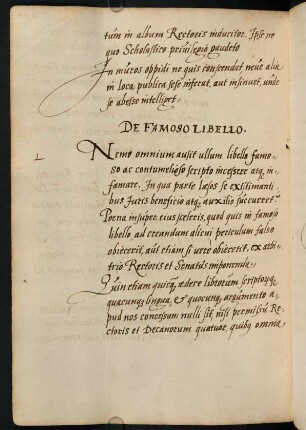 tum in album Rectoris inducitor. Ipse ne
quo Scholastico priuilegio gaudeto
In muros oppidi ne quis conscendat neue alia
in loca publica sese inferat, aut insinuet, unde
se abesse intelligit.
DE FAMOSO LIBELLO.
L
Nemo omnium ausit ullum libello famo-
so ac contumelioso scripto incessere atq, in-
famare. In qua parte laesos se existimanti
bus Iuris beneficio atq, auxilio succurret
Poena insuper eius sceleris, quod quis in famoso
libello ad creandum alicui periculum falso
obiecerit, aut etiam si uere obiecerit, ex arbi-
trio Rectoris et Senatus imponenda.
Quin etiam quicq, aedere librorum scriptorq,
quacunq, lingua, et quocunq, argumento a-
pud nos concessum nulli sit, nisi permissu Re-
ctoris et Decanorum quatuor, quibq omnia